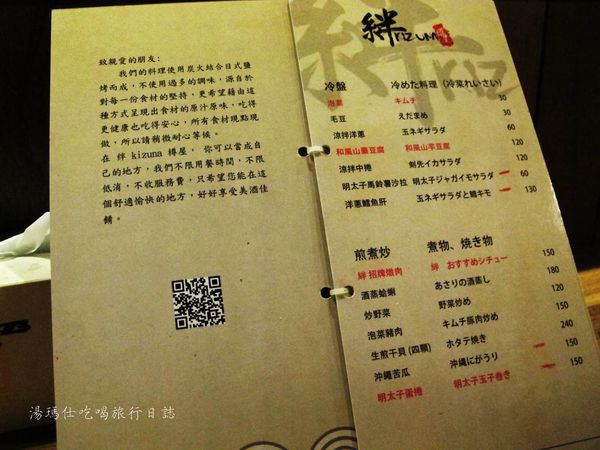 致親愛的朋友:
我們的料理使用炭火結合日式鹽
烤而成，不使用過多的調味，源自於
對每一份食材的堅持，更希望藉由這
種方式呈現出食材的原汁原味，吃得
更健康也吃得安心，所有食材現點現
做，所以請稍微耐心等候。
在 絆 kizuna 樽屋， 你可以當成自
己的地方，我們不限用餐時間，不限
低消，不收服務費，只希望您能在這
個舒適愉快的地方，好好享受美酒佳
餚。
絆
冷盤 冷めた料理（冷菜れいさい）
泡菜 キムチ 30
毛豆 えだまめ 30
涼拌洋蔥 玉ネギサラダ 60
和風山藥豆腐 和風山芋豆腐 120
涼拌中捲 剣先イカサラダ 120
明太子馬鈴薯沙拉 明太子ジャガイモサラダ 60
洋蔥鱈魚肝 玉ネギサラダと鱈キモ 130
煎煮炒 煮物、焼き物
絆 招牌燉肉 絆 おすすめシチュー 150
酒蒸蛤蜊 あさりの酒蒸し 180
炒野菜 野菜炒め 120
泡菜豬肉 キムチ豚肉炒め 150
生煎干貝 (四顆) ホタテ焼き 240
沖繩苦瓜 沖縄にがうり 150
明太子蛋捲 明太子玉子巻き 150
湯瑪仕吃喝旅行日誌